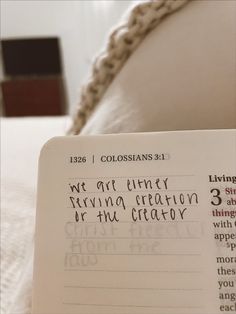 1326 | COLOSSIANS 3:1
we are either
serving creation
or the creator
Christ freed
from the
law
Living
3
things
with
appe
mora
these
you
ang
each